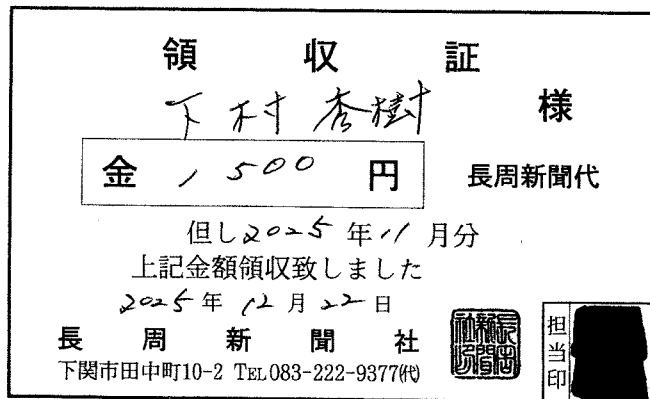 領収証
下村秀樹 様
金 1,500 円 長周新聞代
但し2025年11月分
上記金額領収致しました
2025年12月22日
長周新聞社
下関市田中町10-2 TEL083-222-9377㈹
長周新聞社印
担当印